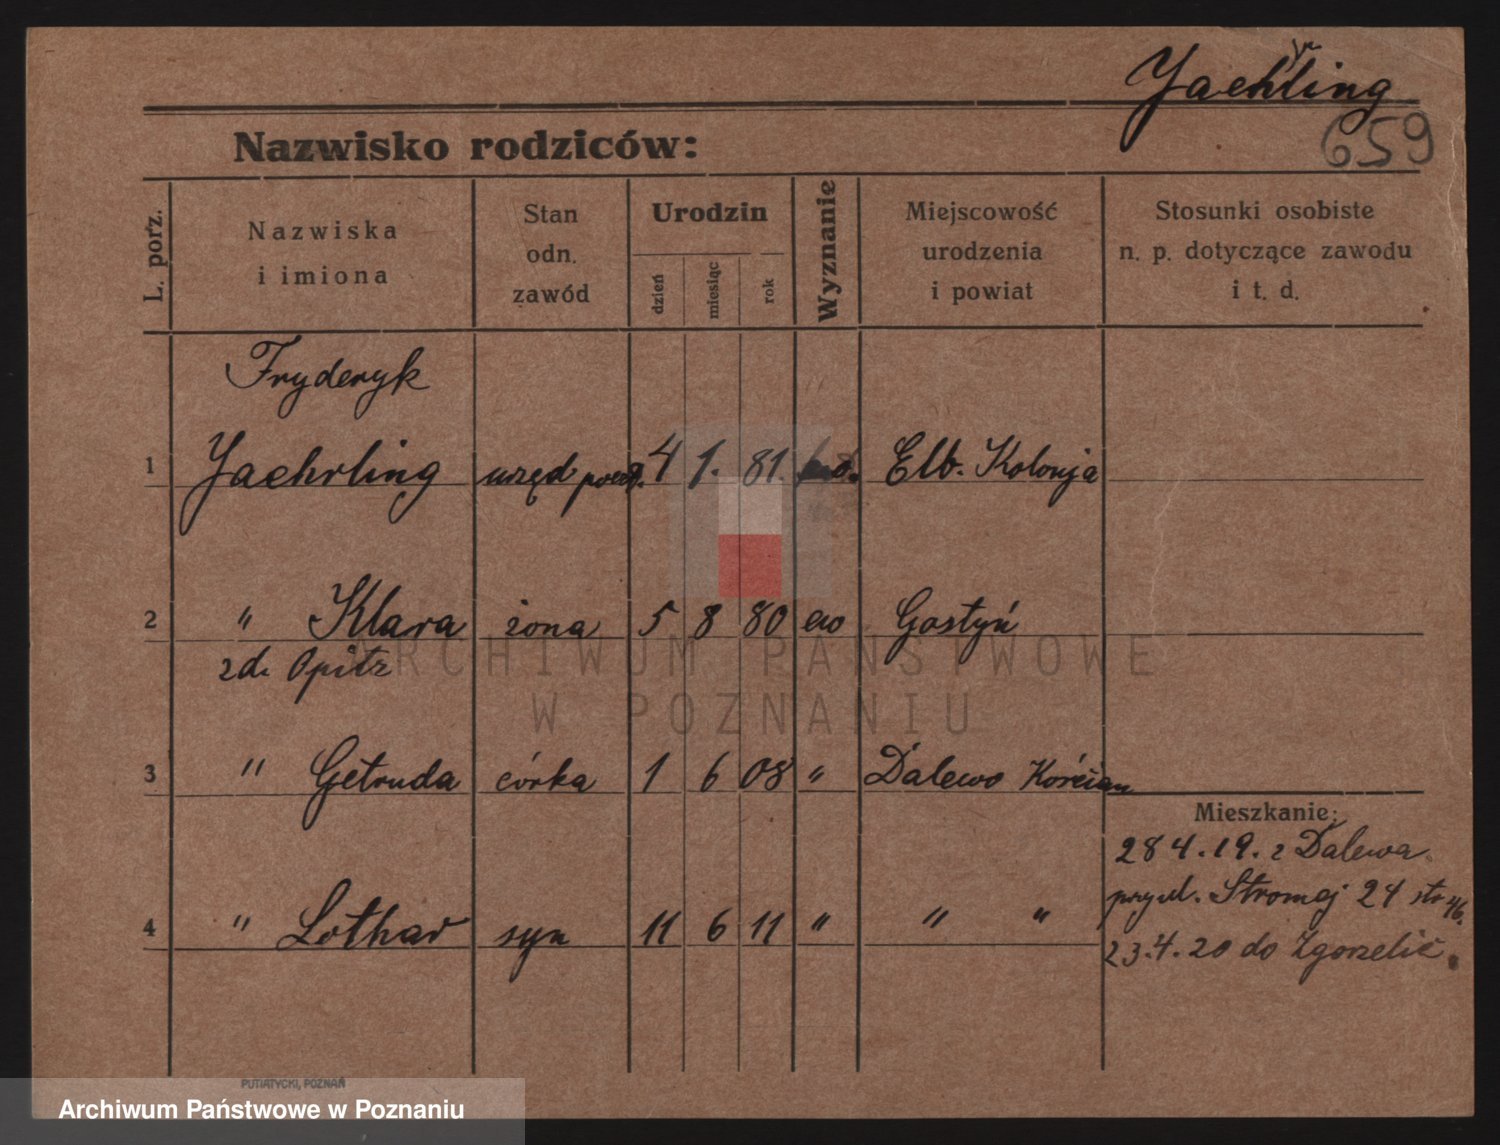 Yaehrling
659
Nazwisko rodziców:
L. porz.
Nazwiska i imiona
Stan odn. zawód
Urodzin
dzień
miesiąc
rok
Wyznanie
Miejscowość urodzenia i powiat
Stosunki osobiste n. p. dotyczące zawodu i t. d.
Fryderyk
1 Yaehrling urzęd 4 1. 81. Elb. Kolonja
2 " Klara żona 5 8 80 ew Gostyń
zd. Opitz
3 " Getruda córka 1 6 08 " Dalewo Kościan
Mieszkanie:
28 4.19. z Dalewa.
przy ul. Stromej 24 str
4 " Lothar syn 11 6 11 " " "
23.4.20 do Zgorzelic.
ARCHIWUM PAŃSTWOWE
W POZNANIU
PUTIATYCKI, POZNAŃ
Archiwum Państwowe w Poznaniu